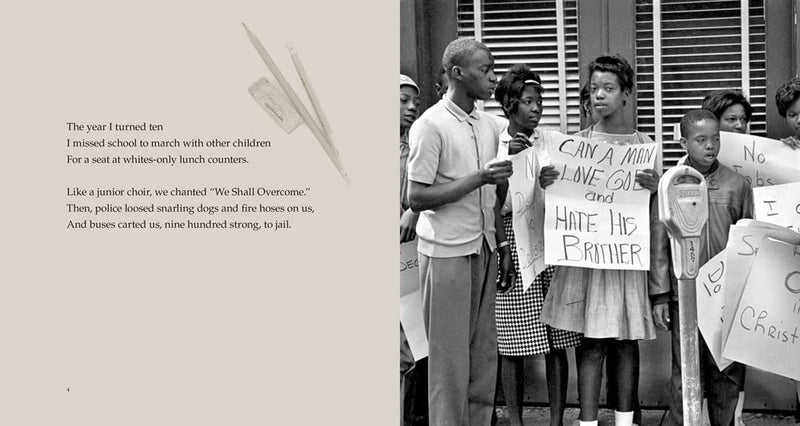 The year I turned ten
I missed school to march with other children
For a seat at whites-only lunch counters.
Like a junior choir, we chanted “We Shall Overcome.”
Then, police loosed snarling dogs and fire hoses on us,
And buses carted us, nine hundred strong, to jail.
4
CAN A MAN
LOVE GOD
and
HATE HIS
BROTHER
No
I
Christ